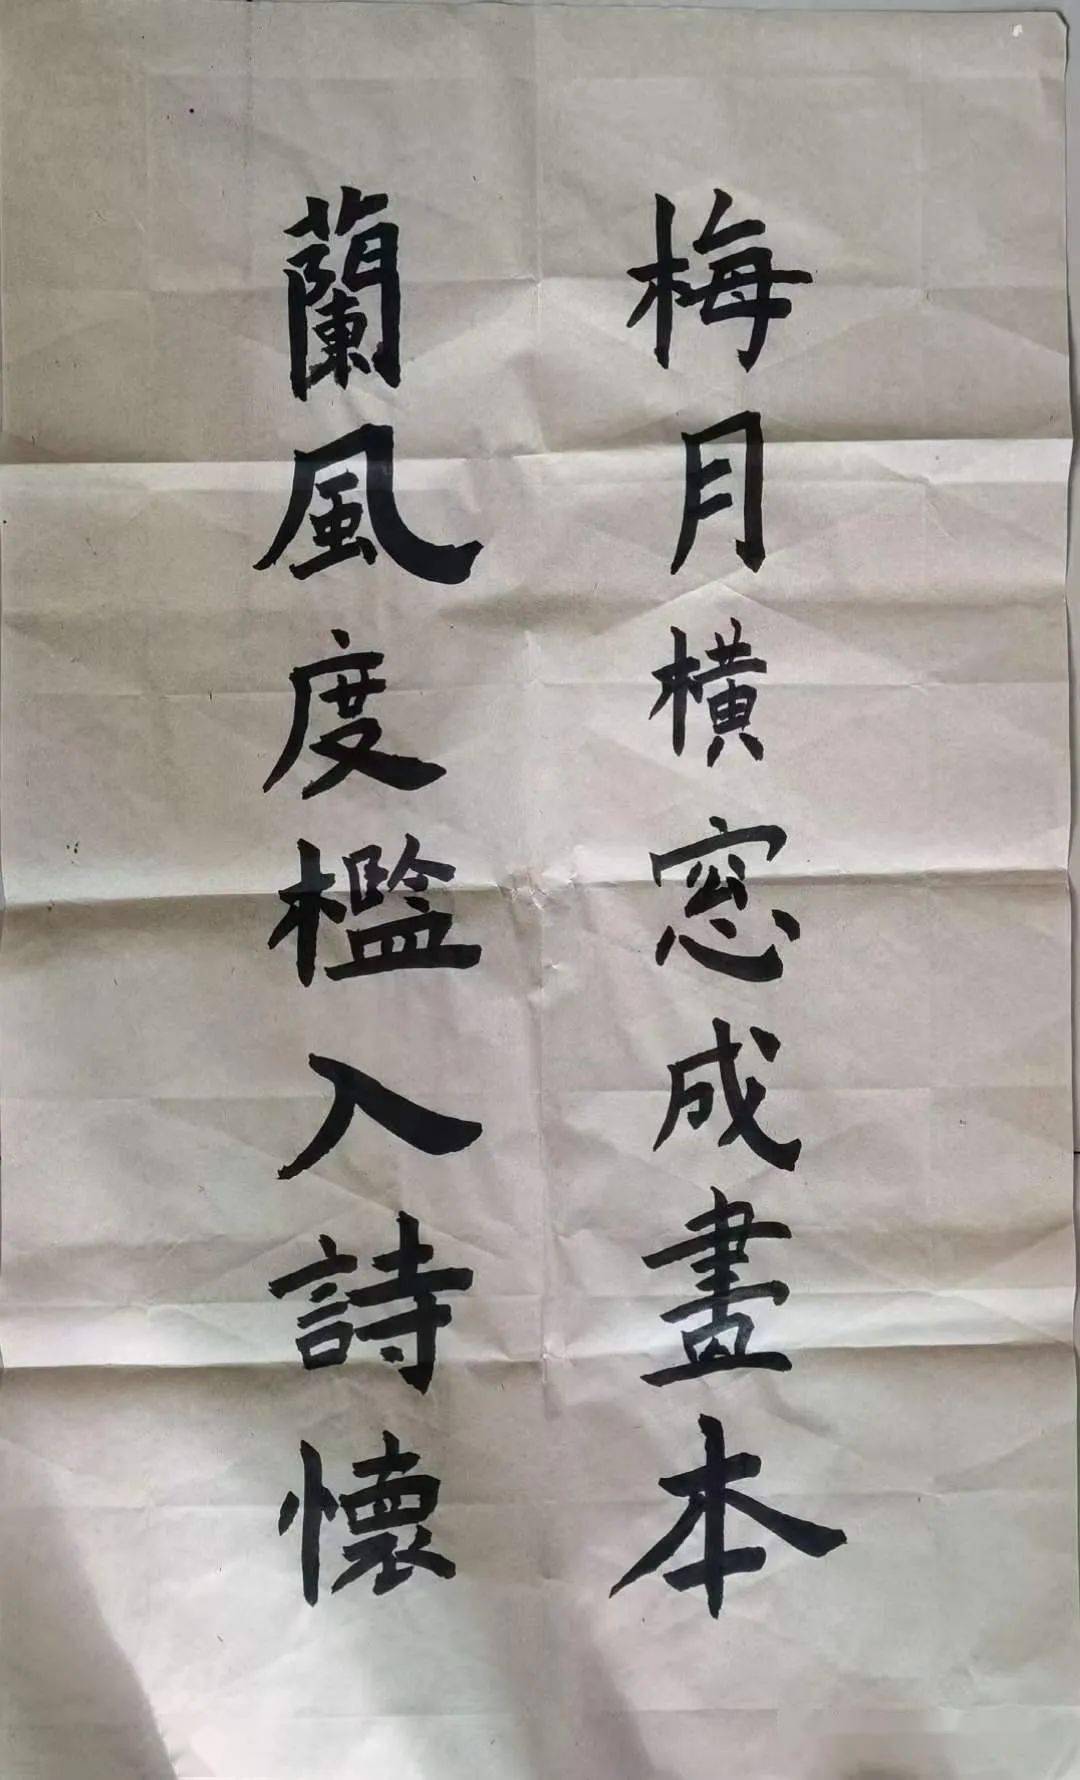 梅月橫窓成畫本
蘭風度檻入詩懷